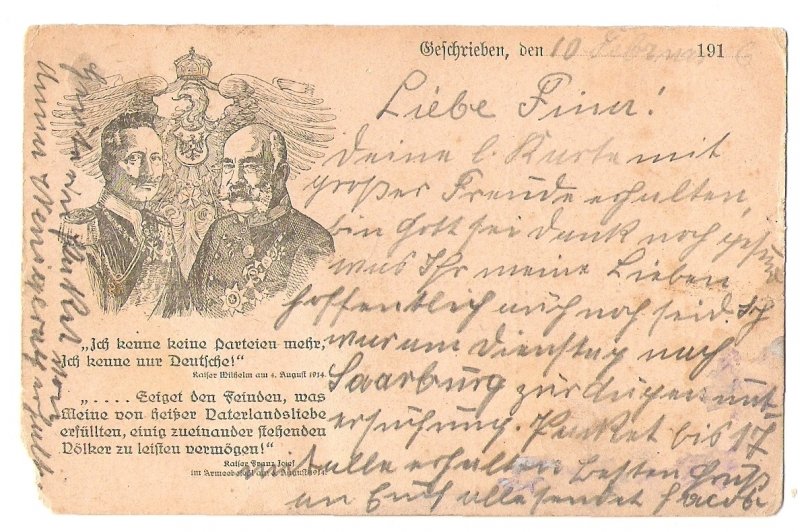 Geschrieben, den 10 Februar 191
Liebe Fina!
Deine l. Karte mit
großer Freude erhalten,
bin Gott sei dank noch gesund
was Ihr meine Lieben
hoffentlich auch noch seid. Ich
war am Dienstag nach
Saarburg zur Augenunt-
ersuchung. Packet bis 17
alle erhalten besten Gruß
an Euch alle sendet Jacob
„Ich kenne keine Parteien mehr,
Ich kenne nur Deutsche!“
Kaiser Wilhelm am 4. August 1914.
„. . . . Zeiget den Feinden, was
Meine von heißer Vaterlandsliebe
erfüllten, einig zueinander stehenden
Völker zu leisten vermögen!“
Kaiser Franz Josef
im Armeebefehl am August 1914.